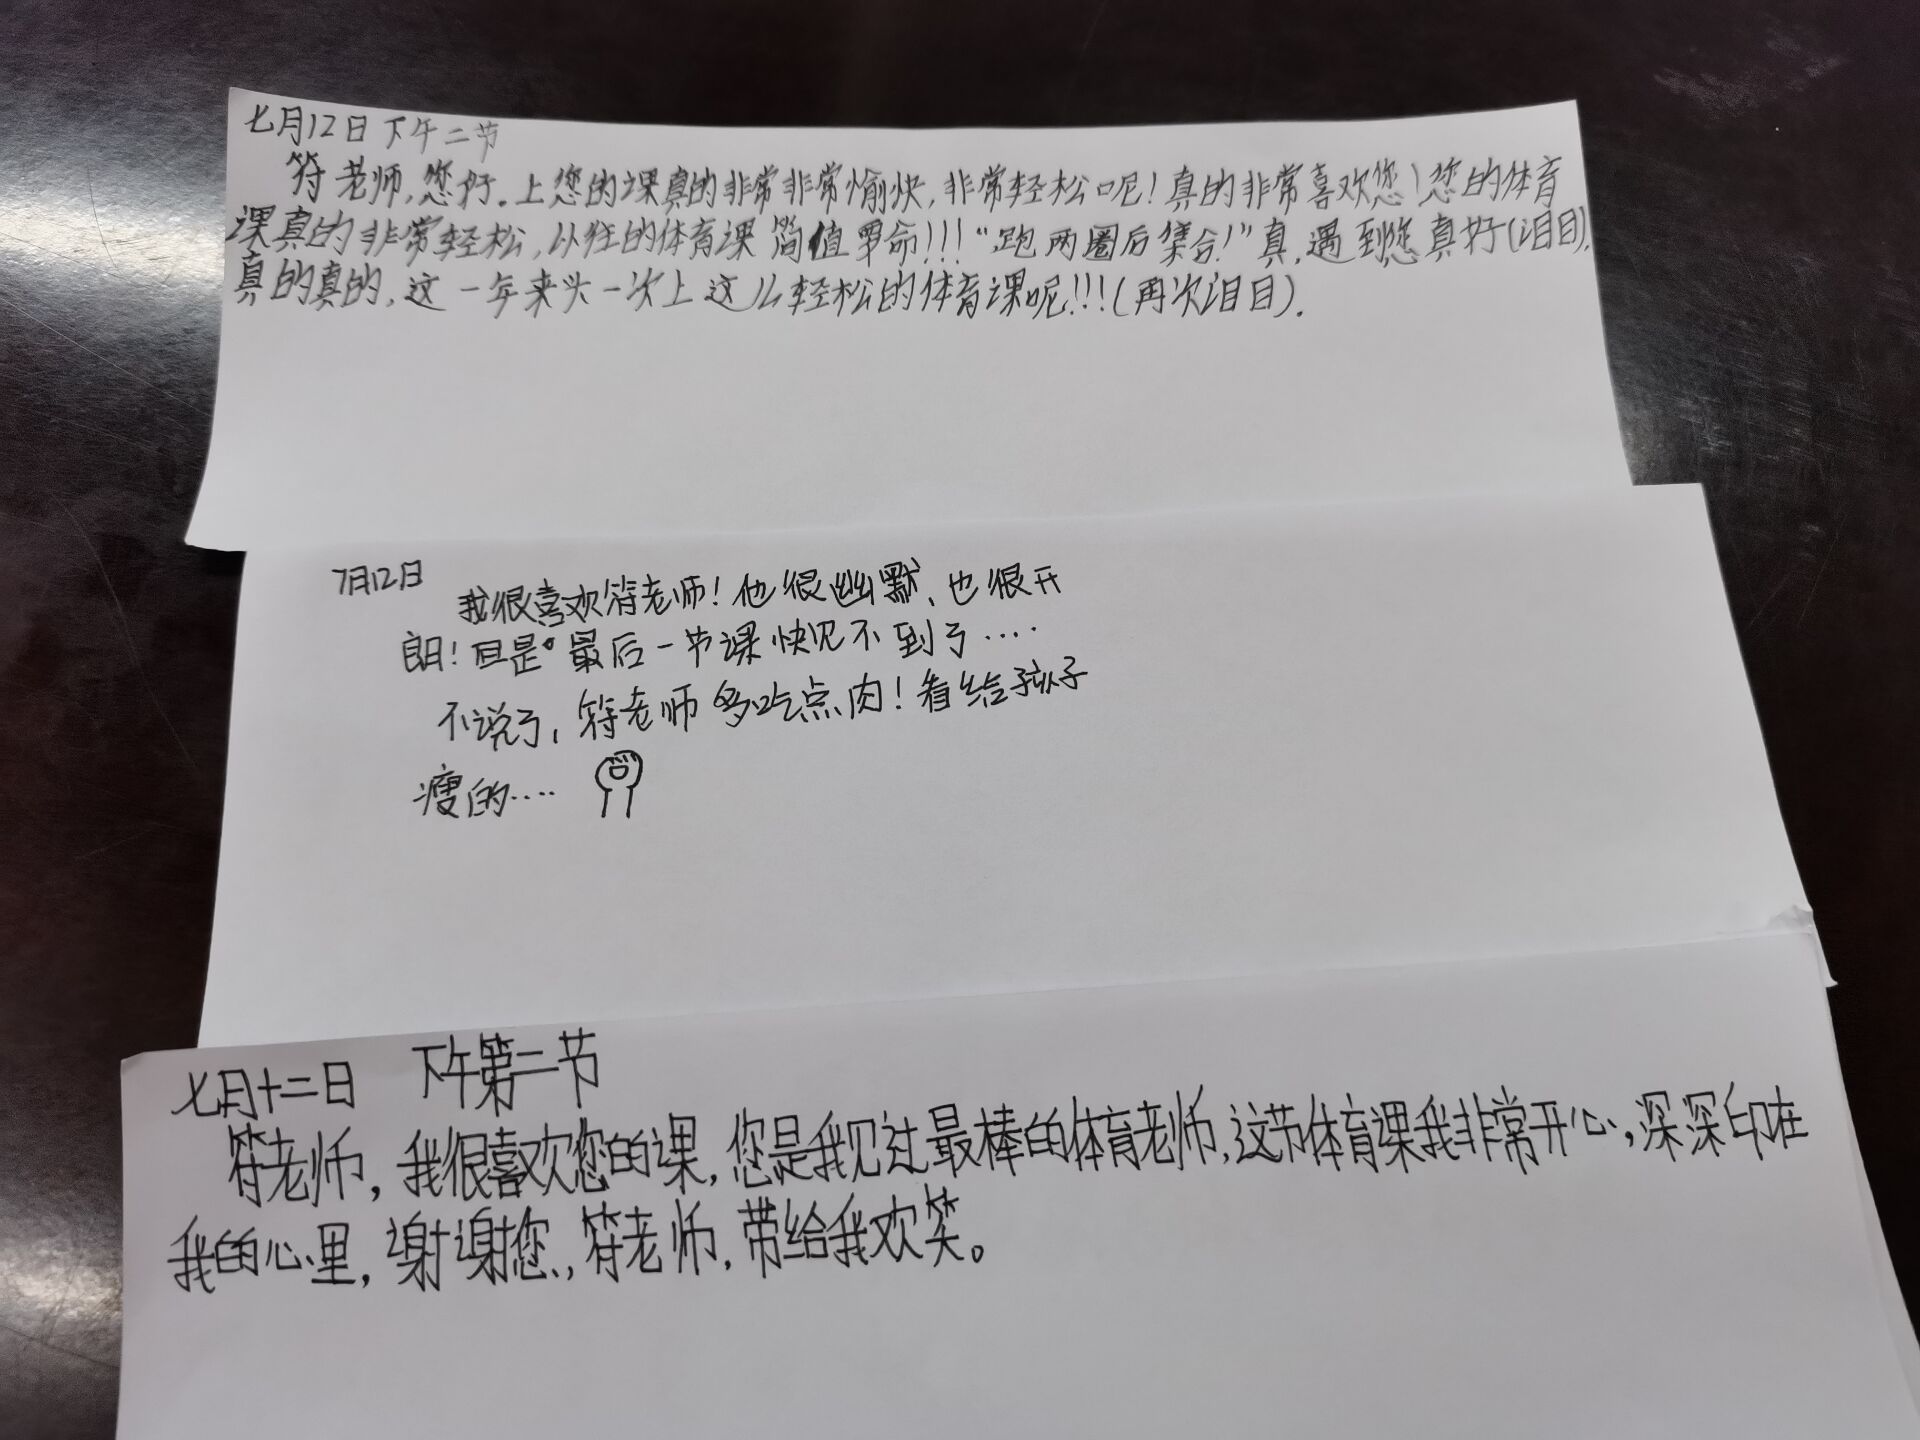 七月12日下午二节
符老师,您好.上您的课真的非常非常愉快,非常轻松呢!真的非常喜欢您!您的体育
课真的非常轻松,以往的体育课简值要命!!!“跑两圈后集合!”真,遇到您真好(泪目).
真的真的,这一年来头一次上这么轻松的体育课呢!!!(再次泪目).
7月12日
我很喜欢符老师!他很幽默、也很开
朗!但是 最后一节课快见不到了....
不说了,符老师多吃点肉!看给孩子
瘦的....
七月十二日 下午第二节
符老师,我很喜欢您的课,您是我见过最棒的体育老师,这节体育课我非常开心,深深印在
我的心里,谢谢您,符老师,带给我欢笑。